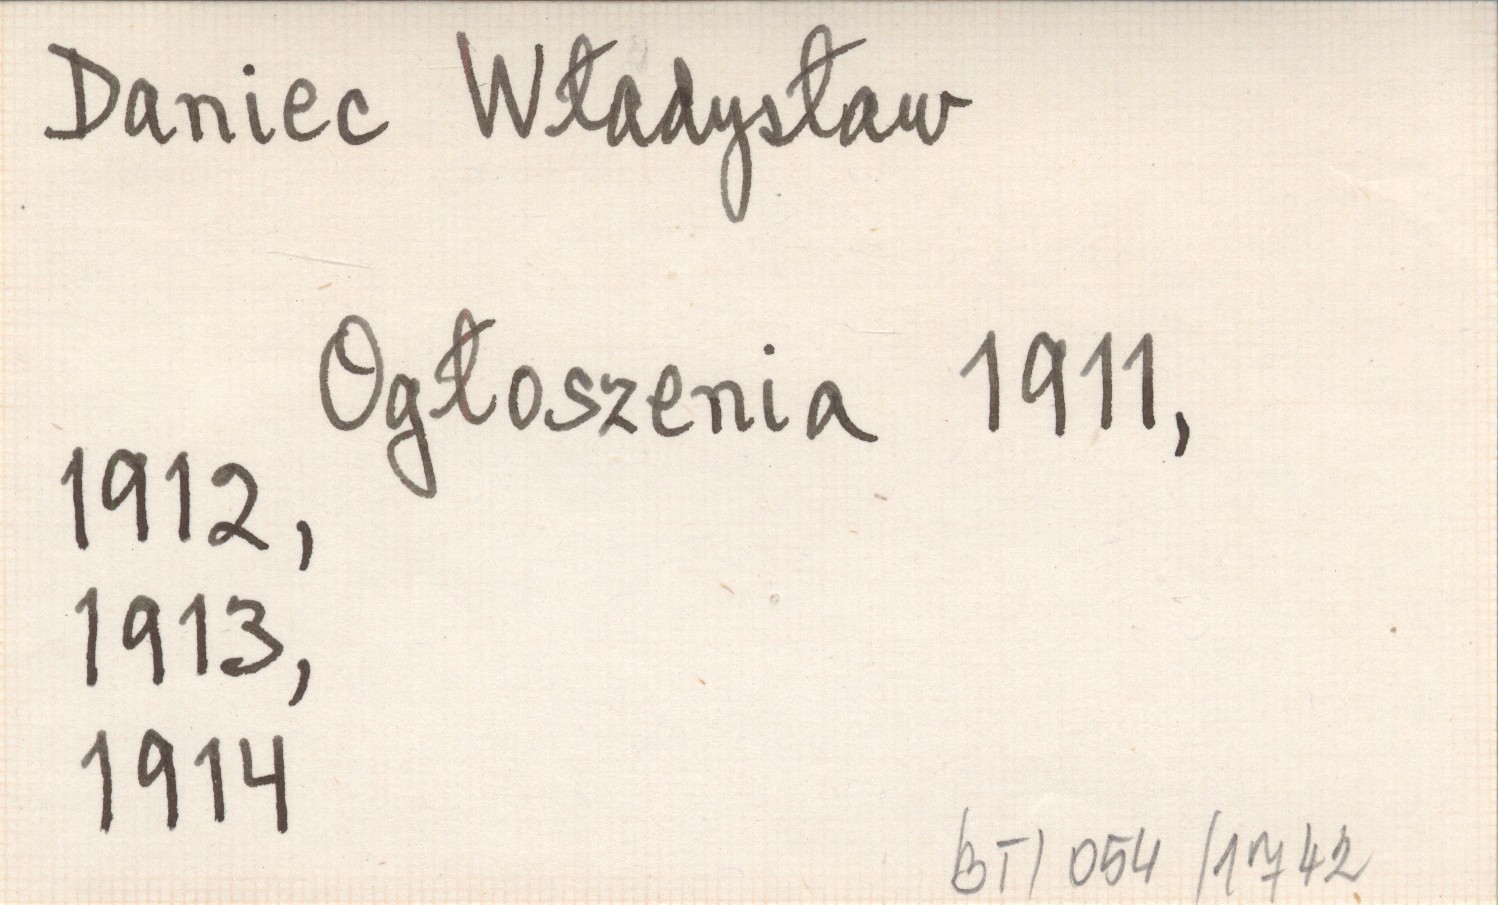 Daniec Władysław
Ogłoszenia 1911,
1912,
1913,
1914
BT/ 054 /1742